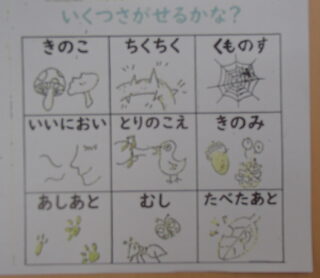 いくつさがせるかな？
きのこ
ちくちく
くものす
いいにおい
とりのこえ
きのみ
あしあと
むし
たべたあと